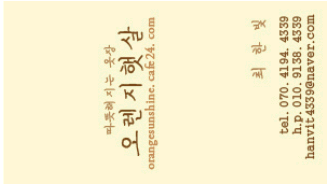 따뜻해지는 옷장
오렌지햇살
orangesunshine.cafe24.com
최 한 빛
tel. 070. 4194. 4339
h.p. 010. 9138. 4339
hanvit4339@naver.com